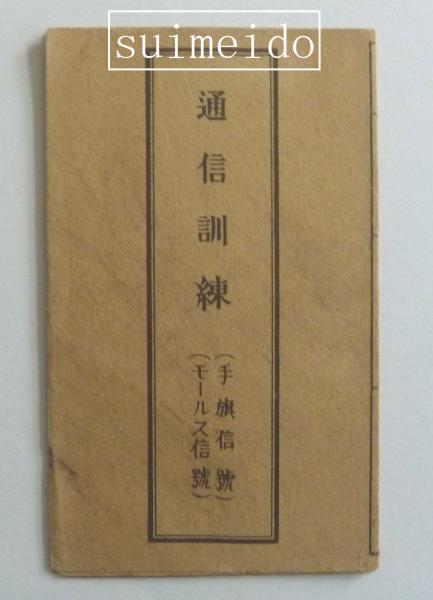 suimeido
通信訓練
(手旗信號)
(モールス信號)